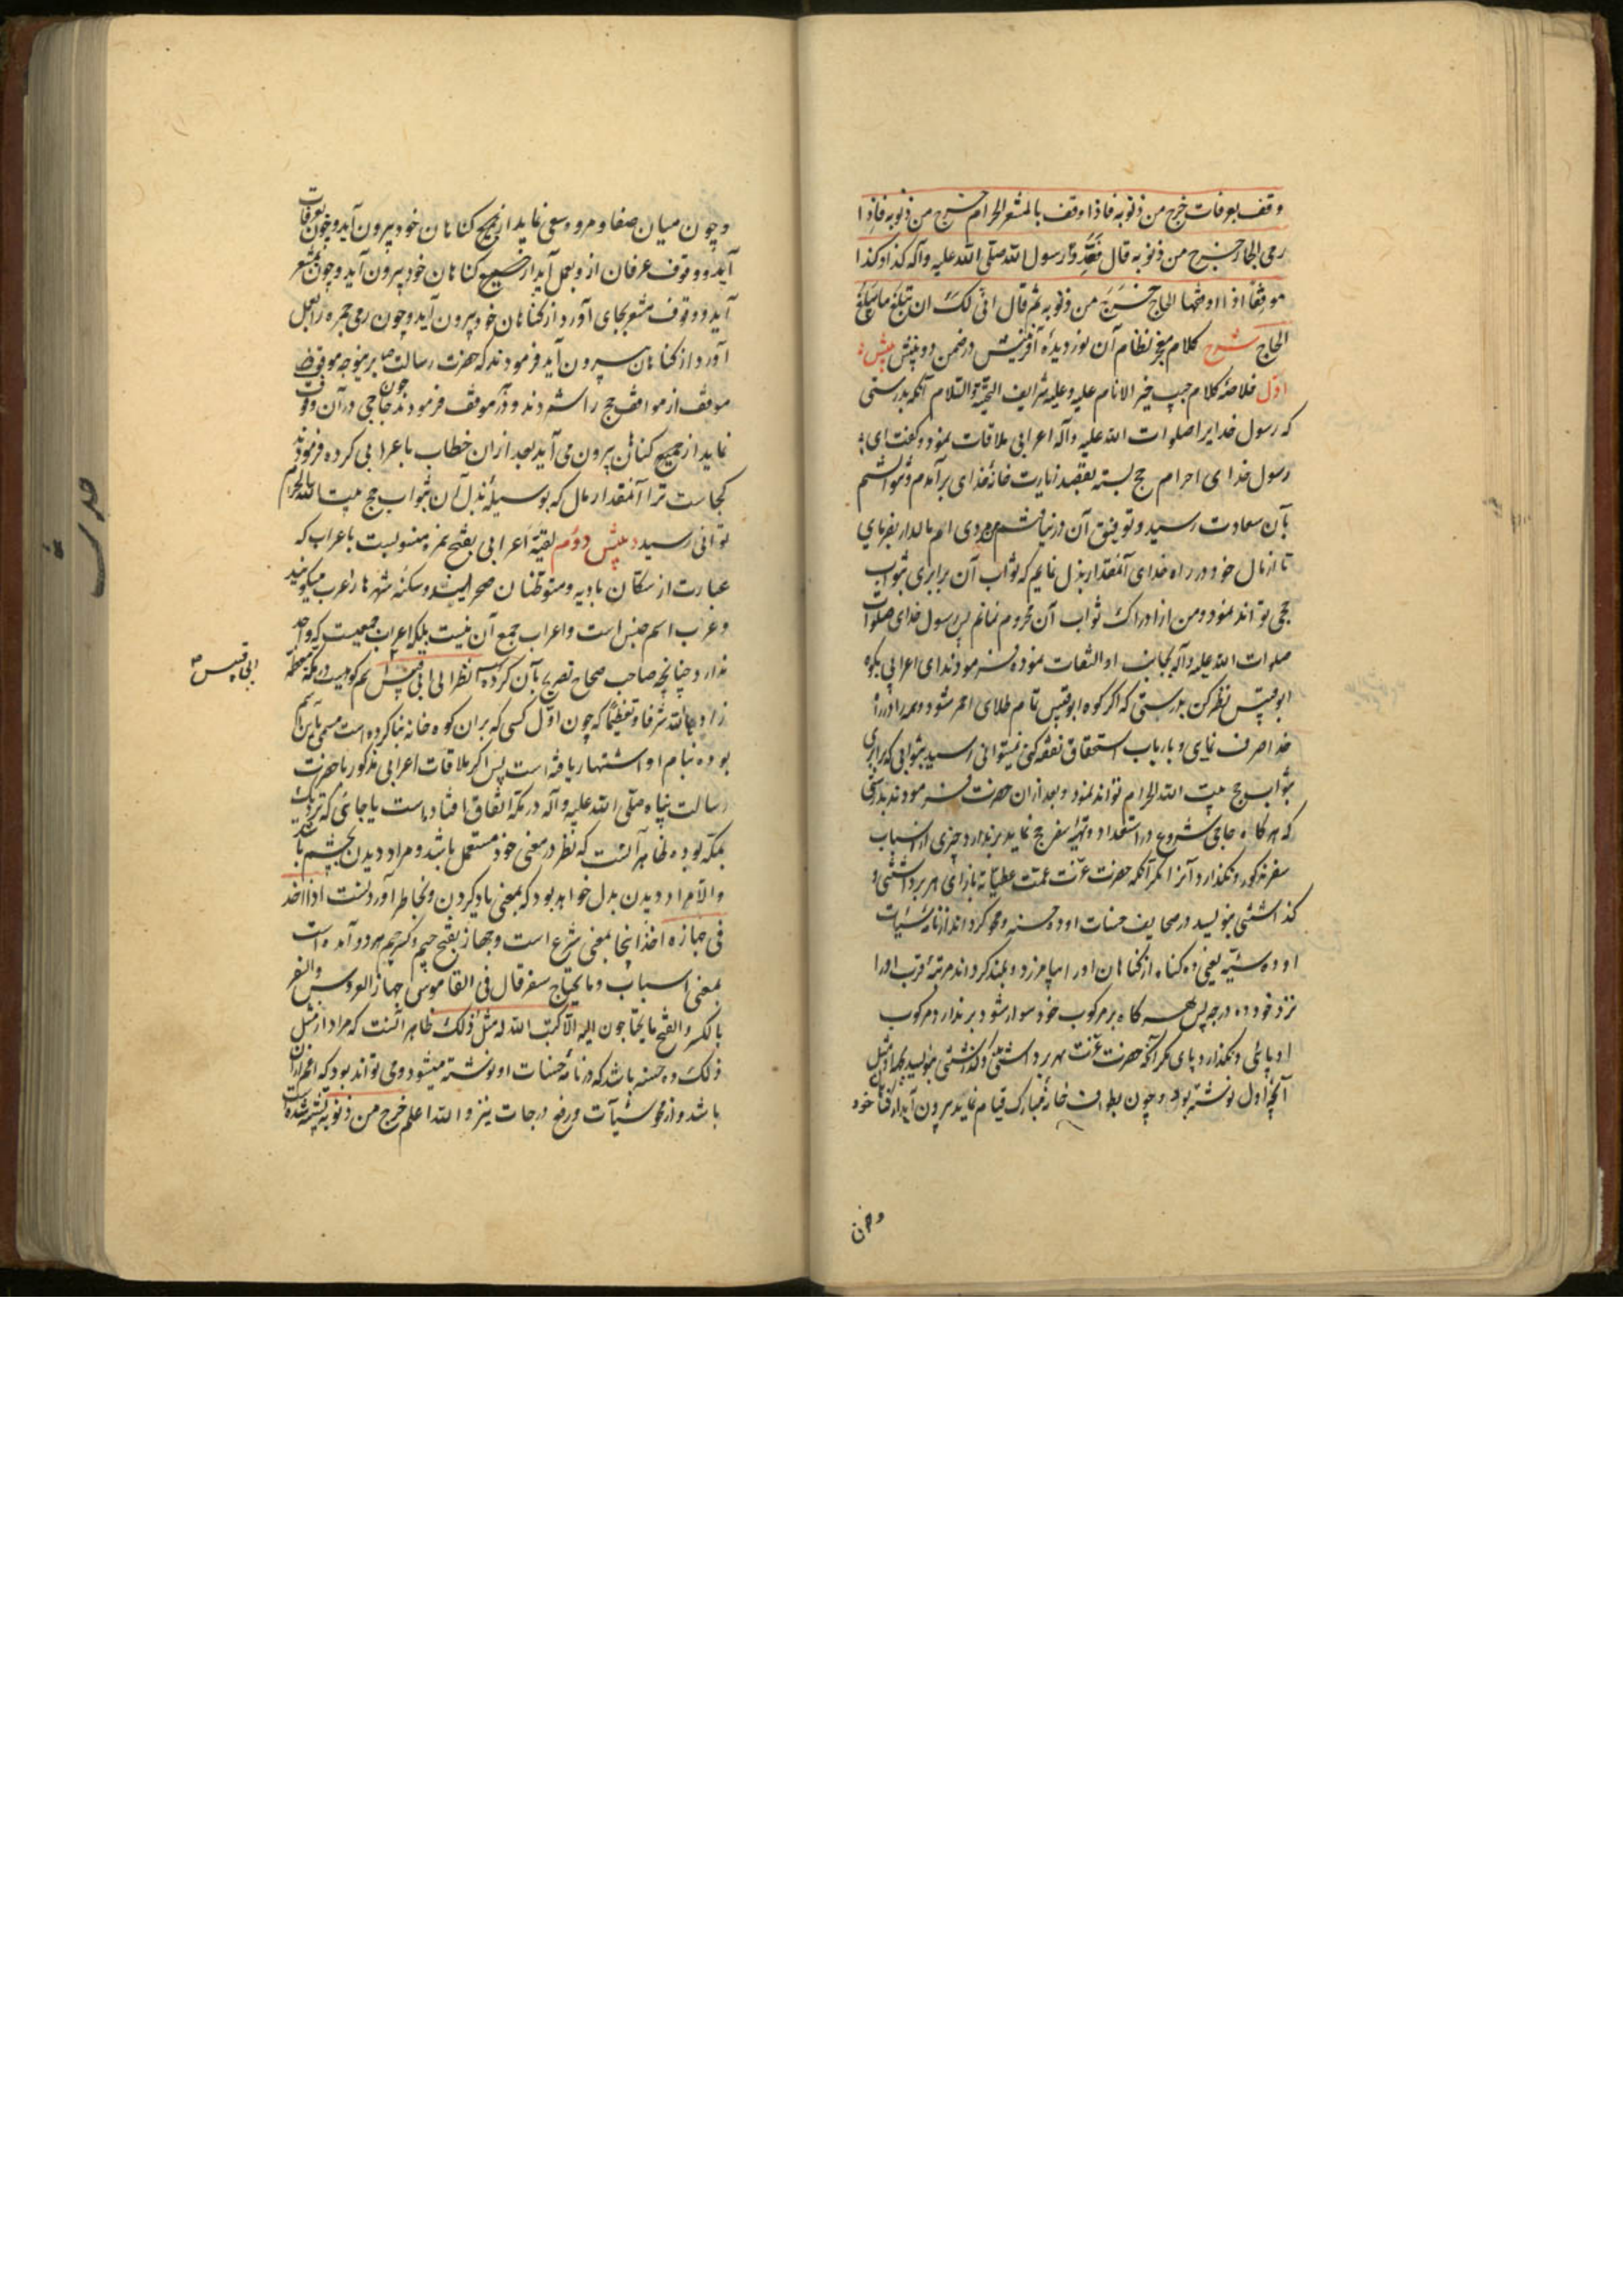 وقف بعرفات خرج من ذنوبه فاذا وقف بالمشعر الحرام خرج من ذنوبه فاذا
رمی الجمار خرج من ذنوبه قال فعد رسول الله صلی الله علیه وآله کذا وکذا
موقفا اذا وقفها الحاج خرج من ذنوبه ثم قال انی لک ان تبلغ ما یبلغ
الحاج شرح کلام معجز نظام آن نور دیدهٔ آفرینش در ضمن دو بینش بینش
اول خلاصهٔ کلام حبیب خیر الانام علیه وعلیه شرایف التحیة والسلام آنکه بدرستی
که رسول خدایرا صلوات الله علیه وآله اعرابی ملاقات نمود و گفت ای
رسول خدای احرام حج بسته بقصد زیارت خانهٔ خدای برآمدم و نتوانستم
بآن سعادت رسید و توفیق آن در نیافتم و مردی ام مالدار بفرمای
تا از مال خود در راه خدای آنمقدار بذل نمایم که ثواب آن برابری بثواب
حجی تواند نمود و من از ادراک ثواب آن محروم نمانم پس رسول خدای صلوات
صلوات الله علیه وآله بجانب او التفات نموده فرمودند ای اعرابی بکوه
ابوقبیس نظر کن بدرستی که اکر کوه ابوقبیس تمام طلای احمر شود و همه را در راه
خدا صرف نمای و بارباب استحقاق نفقه کنی نمیتوانی رسید بثوابی که برابری
بثواب حج بیت الله الحرام تواند نمود و بعد ازان حضرت فرمودند بدرستی
که هر کاه حاجی شروع در استعداد و تهیهٔ سفر حج نماید بر ندارد چیزی از اسباب
سفر مذکور و نکذارد آنرا مکر آنکه حضرت عزت عمت عطیاته بازای هر برداشتنی و
کذاشتنی بنویسد در صحایف حسنات او ده حسنه و محو کرداند از نامهٔ سیئات
او ده سیئه یعنی ده کناه از کناهان او را بیامرزد و بلند کرداند مرتبهٔ قرب او را
نزد خود ده درجه پس هر کاه بر مرکوب خود سوار شود بر ندارد مرکوب
او پائی و نکذارد پای مکر آنکه حضرت عزت بهر برداشتنی و کذاشتنی بنویسد بهر او مثل
آنچه اول نوشته بود و چون بطواف خانهٔ مبارک قیام نماید بیرون آید از کناه خود
و چون
و چون میان صفا و مروه سعی نماید از جمیع کناهان خود بیرون آید و چون بعرفات
آید و وقوف عرفات ازو بعمل آید از جمیع کناهان خود بیرون آید و چون بمشعر
آید و وقوف مشعر بجای آورد از کناهان خود بیرون آید و چون رمی جمره را بعمل
آورد از کناهان بیرون آید فرمودند که حضرت رسالت ص برینوجه موقف
موقف از مواقف حج را شمردند و در هر موقف فرمودند چون حاجی در آن وقوف
نماید از جمیع کناهان بیرون می آید بعد ازان خطاب باعرابی کرده فرمودند
کجاست ترا آنمقدار مال که بوسیلهٔ بذل آن بثواب حج بیت الله الحرام
توانی رسید بینش دوم لقیه اعرابی بفتح همزه منسوبست باعراب که
عبارت از سکان بادیه و متوطنان صحراست و سکنهٔ شهرها را عرب میکویند
و عرب اسم جنس است و اعراب جمع آن نیست بلکه اعراب جمعیست که واحد
ندارد چنانچه صاحب صحاح تصریح بآن کرده انظر الی ابی قبیس اسم کوهیست در مکهٔ معظمه
ابی قبیس ص
زادها الله شرفا و تعظیما که چون اول کسی که بران کوه خانه بنا کرده است مسمی باین اسم
بوده بنام او اشتهار یافته است پس اکر ملاقات اعرابی مذکور با حضرت
رسالت پناه صلی الله علیه وآله در مکه اتفاق افتاده است یا جائی که نزدیک
بمکه بوده ظاهر آنست که نظر در معنی خود مستعمل باشد و مراد دیدن بچشم باشد
والا مراد دیدن بدل خواهد بود که بمعنی یاد کردن و بخاطر آوردنست اذا اخذ
فی جهازه اخذ اینجا بمعنی شرع است و جهاز بفتح جیم و کسر جیم هر دو آمده است
بمعنی اسباب و ما یحتاج سفر قال فی القاموس جهاز العروس والسفر
بالکسر والفتح ما یحتاجون الیه الا کتب الله له مثل ذلک ظاهر آنست که مراد از مثل
ذلک ده حسنه باشد که در نامهٔ حسنات او نوشته میشود و می تواند بود که اعم ازان
باشد و از محو سیئآت و رفع درجات نیز والله اعلم خرج من ذنوبه تشبیه شده است